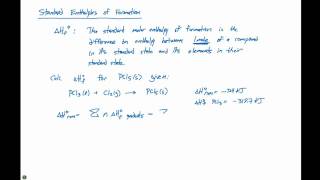 Standard Enthalpies of Formation
ΔHf° : The standard molar enthalpy of formation is the
difference in enthalpy between 1 mole of a compound
in its standard state and its elements in their
standard state.
Calc ΔHf° for PCl5(s) given:
PCl3(l) + Cl2(g) → PCl5(s) ΔH°rxn =
ΔHf° PCl3 =
ΔH°rxn = Σ n ΔHf° products - Σ